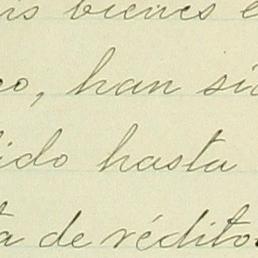 is bienes e
co, han si
ido hasta
ta de réditos